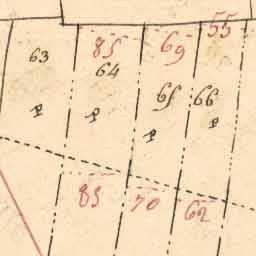 55
85 69
63 64
65 66
85 70 62